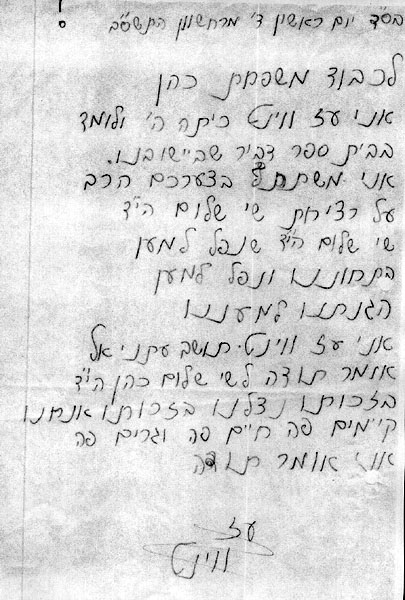 בס"ד יום ראשון ד' מרחשוון התשס"ב
לכבוד משפחת כהן
אני עז ווינט כיתה ה' ולומד
בבית ספר דביר שביישובנו.
אני משתתף בצערכם הרב
על רציחת שי שלום הי"ד
שי שלום הי"ד שנפל למען
בתחוננו ונפל למען
הגנתנו למעננו
אני עז ווינט תושב
אומר תודה לשי שלום כהן הי"ד
בזכותו נצלנו בזכותו אנחנו
קיימים פה חיים פה וגרים פה
אני אומר תודה
עז
ווינט